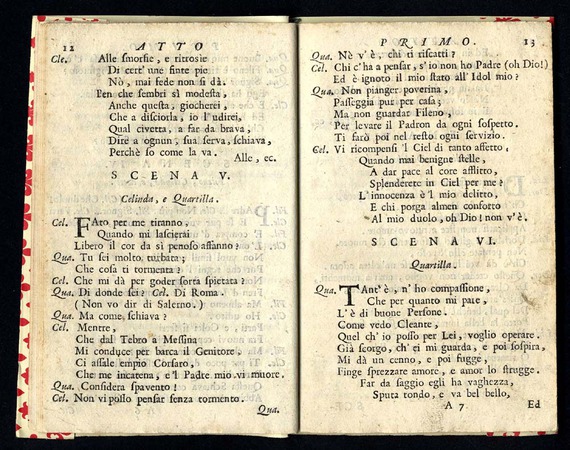 12 ATTO
Cle. Alle smorfie, e ritrosie
Di cert' une finte pie
Nò, mai fede non si dà.
Ben che sembri sì modesta,
Anche questa, giocherei,
Che a disciorla, io l'udirei,
Qual civetta, a far da brava,
Dire a ognun, sua serva, schiava,
Perchè so come la va.
Alle, ec.
SCENA V.
Celinda, e Quartilla.
Cel. FAto per me tiranno,
Quando mi lascierai
Libero il cor da sì penoso affanno?
Qua. Tu sei molto turbata;
Che cosa ti tormenta?
Cel. Che mi dà per goder sorta spietata?
Qua. Di donde sei? Cel. Di Roma.
(Non vo dir di Salerno.)
Qua. Ma come schiava?
Cel. Mentre,
Che dal Tebro a Messina
Mi conduce per barca il Genitore,
Ci assale empio Corsaro,
Che me incatena, e'l Padre mio vi muore.
Qua. Considera spavento!
Cel. Non vi posso pensar senza tormento.
Qua.
PRIMO. 13
Qua. Nè v'è, chi ti riscatti?
Cel. Chi c'ha a pensar, s'io non ho Padre (oh Dio!)
Ed è ignoto il mio stato all'Idol mio?
Qua. Non pianger poverina,
Passeggia pur per casa;
Ma non guardar Fileno,
Per levare il Padron da ogni sospetto.
Ti farò poi nel resto ogni servizio.
Cel. Vi ricompensi 'l Ciel di tanto affetto,
Quando mai benigne stelle,
A dar pace al core afflitto,
Splenderete in Ciel per me?
L'innocenza è 'l mio delitto,
E chi porga almen conforto
Al mio duolo, oh Dio! non v'è.
SCENA VI.
Quartilla.
Qua. TAnt'è, n'ho compassione,
Che per quanto mi pare,
L'è di buone Persone.
Come vedo Cleante,
Quel ch'io posso per Lei, voglio operare.
Già scorgo, ch'ei mi guarda, e poi sospira,
Mi dà un cenno, e poi fugge,
Finge sprezzare amore, e amor lo strugge.
Far da saggio egli ha vaghezza,
Sputa tondo, e va bel bello,
A 7 Ed